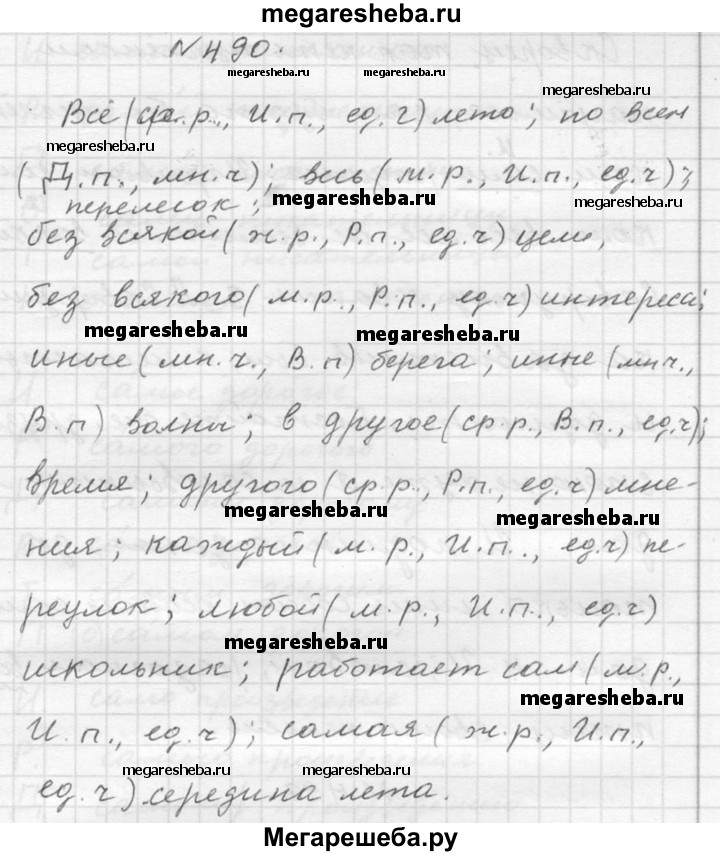 megaresheba.ru
№490.
megaresheba.ru megaresheba.ru megaresheba.ru
Всё (ср.р., И.п., ед.ч) лето; по всем
megaresheba.ru
(Д.п., мн.ч); весь (м.р., И.п., ед.ч);
перелесок; megaresheba.ru megaresheba.ru
без всякой (ж.р., Р.п., ед.ч) цели,
без всякого (м.р., Р.п., ед.ч) интереса;
megaresheba.ru megaresheba.ru
иные (мн.ч., В.п) берега; иные (мн.ч.,
В.п) волны; в другое (ср.р., В.п., ед.ч);
время; другого (ср.р., Р.п., ед.ч) мне-
megaresheba.ru megaresheba.ru
ния; каждый (м.р., И.п., ед.ч) пе-
реулок; любой (м.р., И.п., ед.ч)
megaresheba.ru
школьник; работает сам (м.р.,
megaresheba.ru
И.п., ед.ч); самая (ж.р., И.п.,
megaresheba.ru megaresheba.ru
ед.ч) середина лета.
Мегарешеба.ру